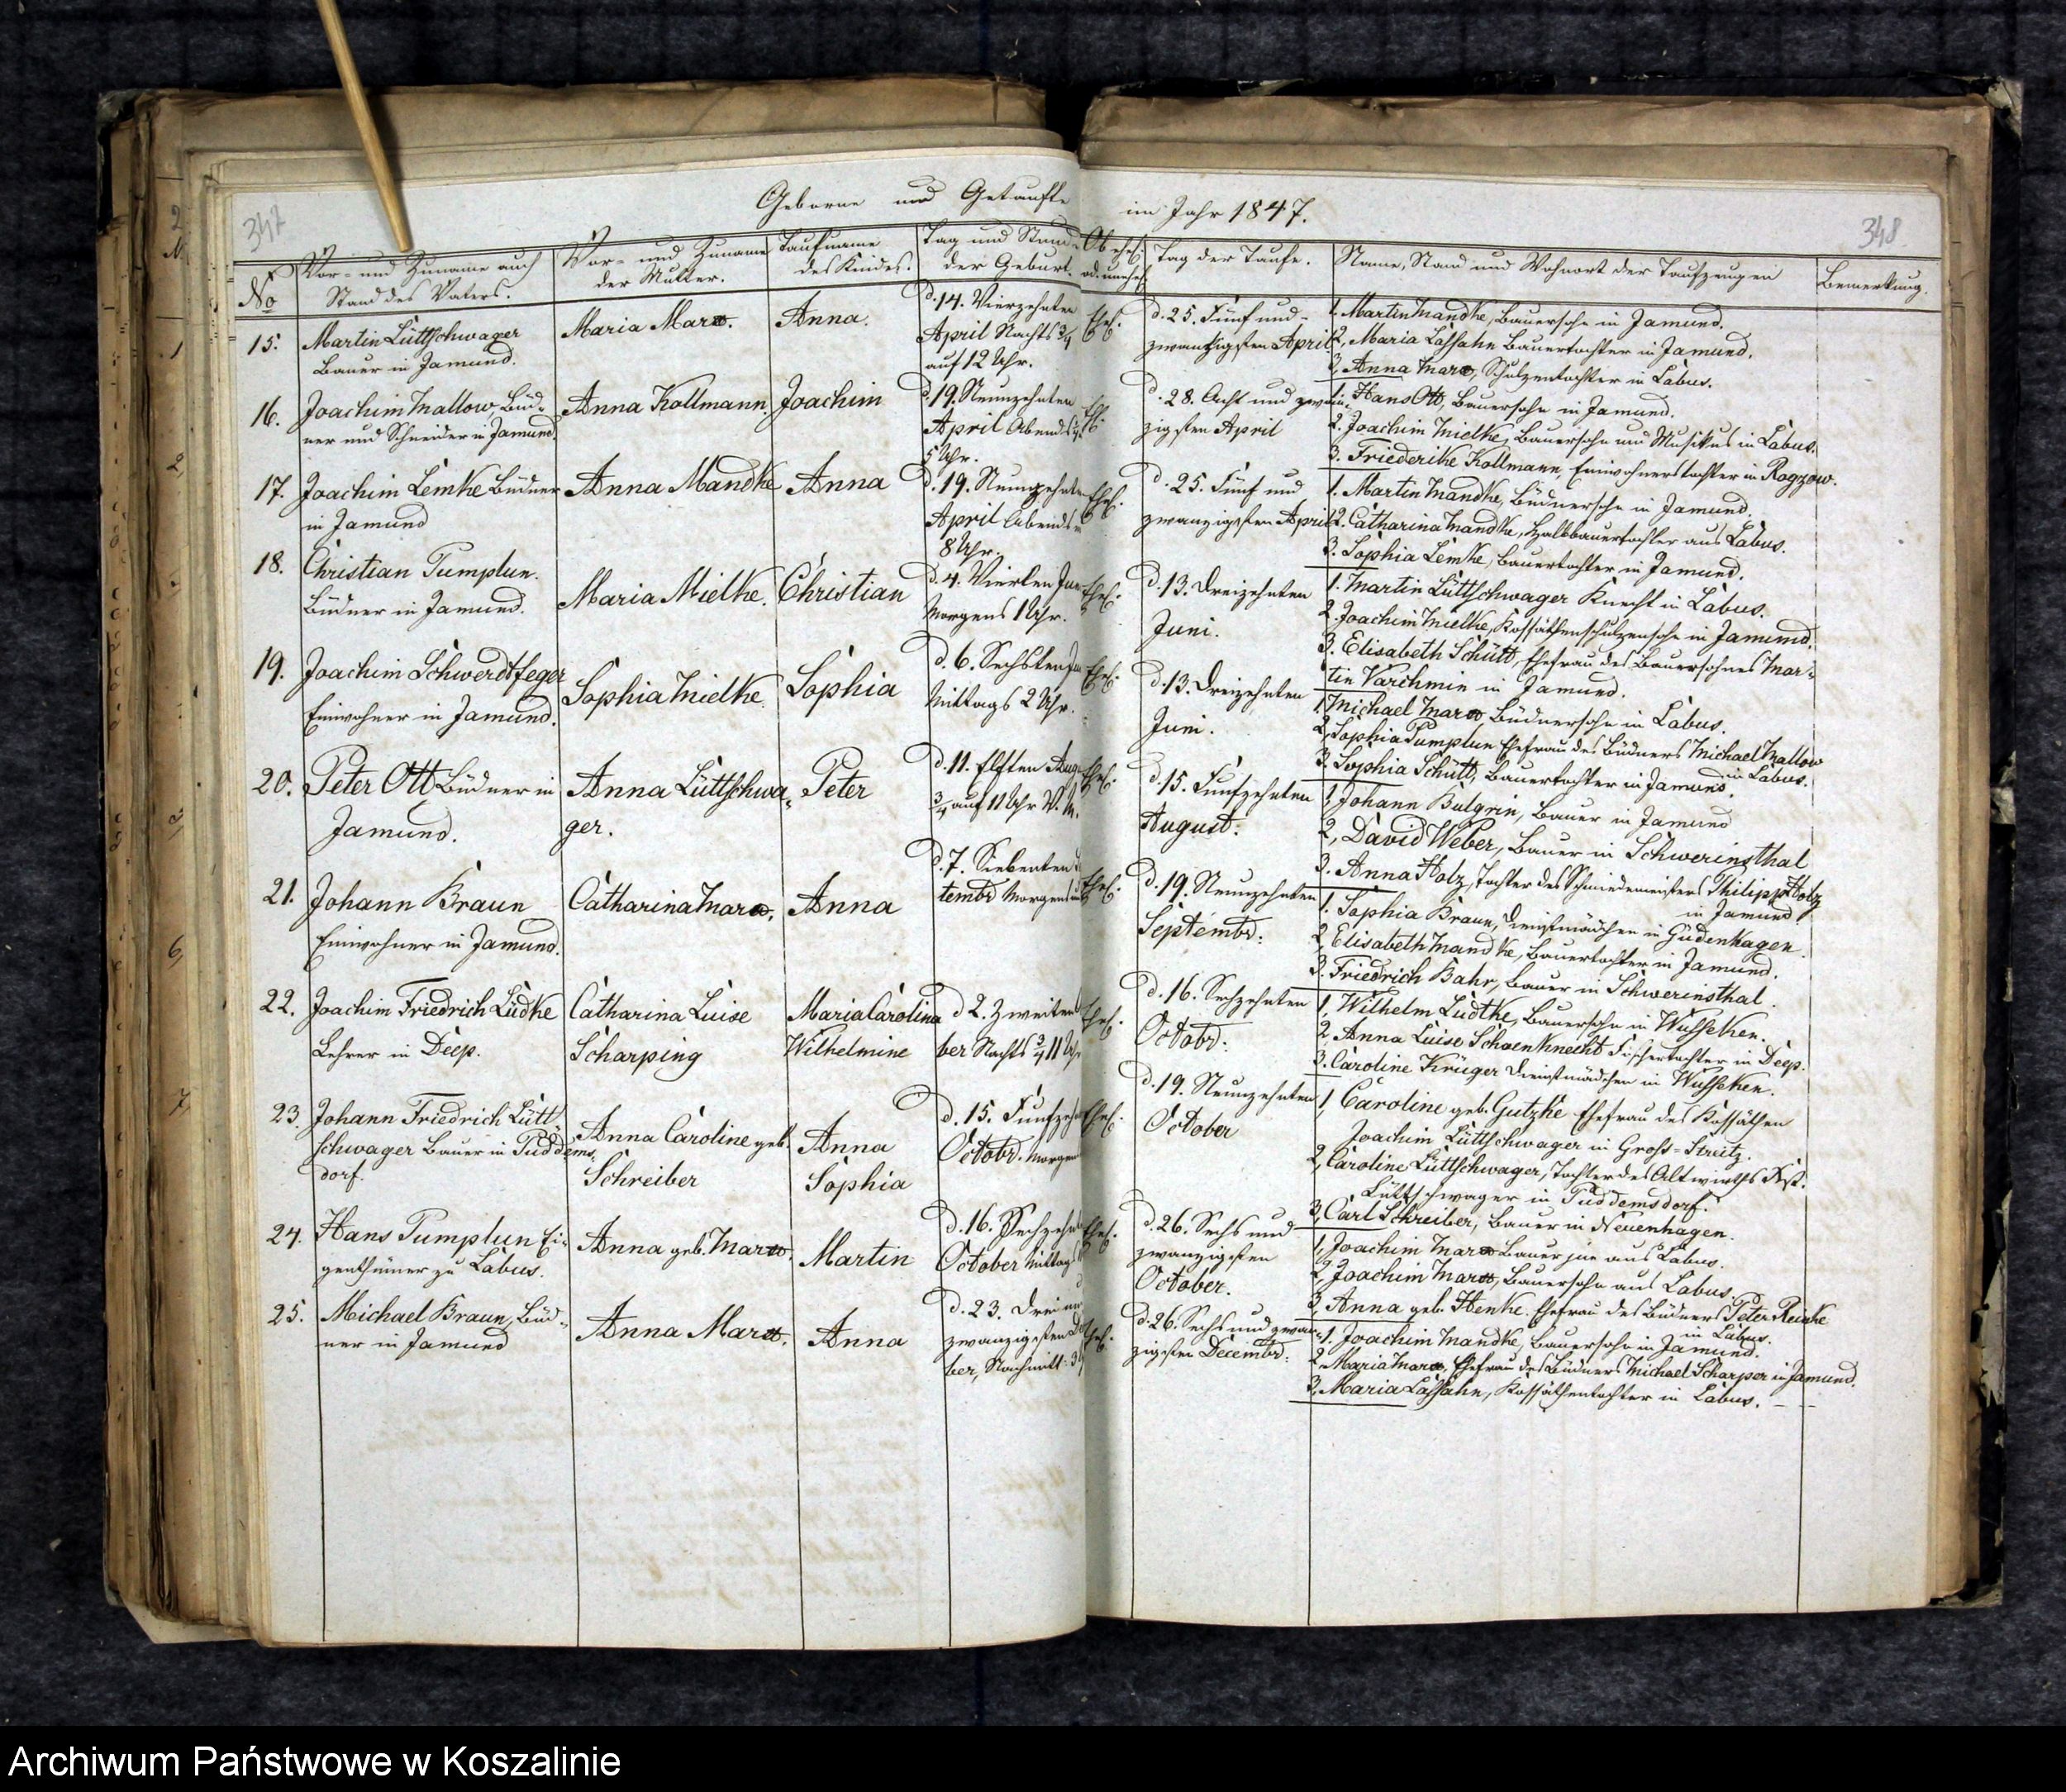 347
Geborne und Getaufte
No
Vor- und Zuname auch
Stand des Vaters.
Vor- und Zuname
der Mutter.
Taufname
des Kindes.
Tag und Stund
der Geburt.
15.
Martin Lüttschwager
Bauer in Jamund.
Maria Marx.
Anna.
d. 14. Vierzehnten
April Nachts 3/4
auf 12 Uhr.
16.
Joachim Mallow, Büd-
ner und Schneider in Jamund.
Anna Kollmann
Joachim
d. 19. Neunzehnten
April Abends
5 Uhr.
17.
Joachim Lemke Büdner
in Jamund
Anna Mandke
Anna
d. 19. Neunzehnten
April Abends
8 Uhr.
18.
Christian Pumplun.
Büdner in Jamund.
Maria Mielke.
Christian
d. 4. Vierten Jun
Morgens 1 Uhr.
19.
Joachim Schwerdtfeger
Einwohner in Jamund.
Sophia Mielke.
Sophia
d. 6. Sechsten Ju
Mittags 2 Uhr.
20.
Peter Ott Büdner in
Jamund.
Anna Lüttschwa-
ger.
Peter
d. 11. Elften Aug
3/4 auf 11 Uhr V. M.
21.
Johann Braun
Einwohner in Jamund.
Catharina Marx.
Anna
d. 7. Siebenten
tembr Morgens
22.
Joachim Friedrich Lüdke
Lehrer in Deep.
Catharina Luise
Scharping
Maria Carolina
Wilhelmine
d 2. Zweiten
ber Nachts 3/4 11 Uhr
23.
Johann Friedrich Lütt-
schwager Bauer in Puddems-
dorf.
Anna Caroline geb.
Schreiber
Anna
Sophia
d. 15. Funfzehn
Octobr. Morgen
24.
Hans Pumplun Ei-
genthümer zu Labus.
Anna geb. Marx.
Martin
d. 16. Sechzehn
October Mittag
25.
Michael Braun, Büd-
ner in Jamund
Anna Marx.
Anna
d. 23. Drei un
zwanzigsten De
ber, Nachmitt. 3
348
im Jahr 1847.
Ob ehel
od. unehel
Tag der Taufe.
Name, Stand und Wohnort der Taufzeugen
Bemerkung.
Ehel.
d. 25. Fünf und-
zwanzigsten April
1. Martin Mandke, Bauersohn in Jamund.
2, Maria Lassahn Bauertochter in Jamund.
3, Anna Marx, Schulzentochter in Labus.
Ehel.
d. 28. Acht und zwan-
zigsten April
1. Hans Ott, Bauersohn in Jamund.
2. Joachim Mielke, Bauersohn und Musikus in Labus.
3. Friederike Kollmann, Einwohnerstochter in Rogzow.
Ehel.
d. 25. Fünf und
zwanzigsten April
1. Martin Mandke, Büdnersohn in Jamund.
2. Catharina Mandke, Halbbauertochter aus Labus.
3. Sophia Lemke, Bauertochter in Jamund.
Ehel.
d. 13. Dreizehnten
Juni.
1. Martin Lüttschwager Knecht in Labus.
2 Joachim Mielke, Kossäthenschulzensohn in Jamund.
3. Elisabeth Schütt, Ehefrau des Bauersohnes Mar-
tin Varchmin in Jamund.
Ehel.
d. 13. Dreizehnten
Juni.
1. Michael Marx, Büdnersohn in Labus.
2, Sophia Pumplun Ehefrau des Büdners Michael Mallow
in Labus.
3. Sophia Schütt, Bauertochter in Jamund.
Ehel.
d. 15. Funfzehnten
August.
1, Johann Bulgrin, Bauer in Jamund
2, David Weber, Bauer in Schwerinsthal
3. Anna Holz, Tochter des Schmiedemeisters Philipp Holz
in Jamund.
Ehel.
d. 19. Neunzehnten
Septembr:
1. Sophia Braun, Dienstmädchen in Güdenhagen.
2, Elisabeth Mandke, Bauertochter in Jamund.
3. Friedrich Bahr, Bauer in Schwerinsthal.
Ehel.
d. 16. Sechzehnten
Octobr:
1, Wilhelm Lüdtke, Bauersohn in Wusseken.
2. Anna Luise Schoenknecht Fischertochter in Deep.
3. Caroline Krüger Dienstmädchen in Wusseken.
Ehel.
d. 19. Neunzehnten
October
1, Caroline geb. Gutzke Ehefrau des Kossäthen
Joachim Lüttschwager in Gross-Streitz.
2, Caroline Lüttschwager, Tochter des Altwirths
Lüttschwager in Puddemsdorf.
3, Carl Schreiber, Bauer in Neuenhagen.
Ehel.
d. 26. Sechs und
zwanzigsten
October.
1, Joachim Marx Bauer jun aus Labus.
2, Joachim Marx, Bauersohn aus Labus.
3, Anna geb. Henke. Ehefrau des Büdners Peter Reinke
in Labus.
Ehel.
d. 26. Sechs und zwan-
zigsten Decembr:
1. Joachim Mandke, Bauersohn in Jamund.
2. Maria Marx, Ehefrau des Büdners Michael Scharper in Jamund.
3, Maria Lassahn, Kossäthentochter in Labus. – –
Archiwum Państwowe w Koszalinie